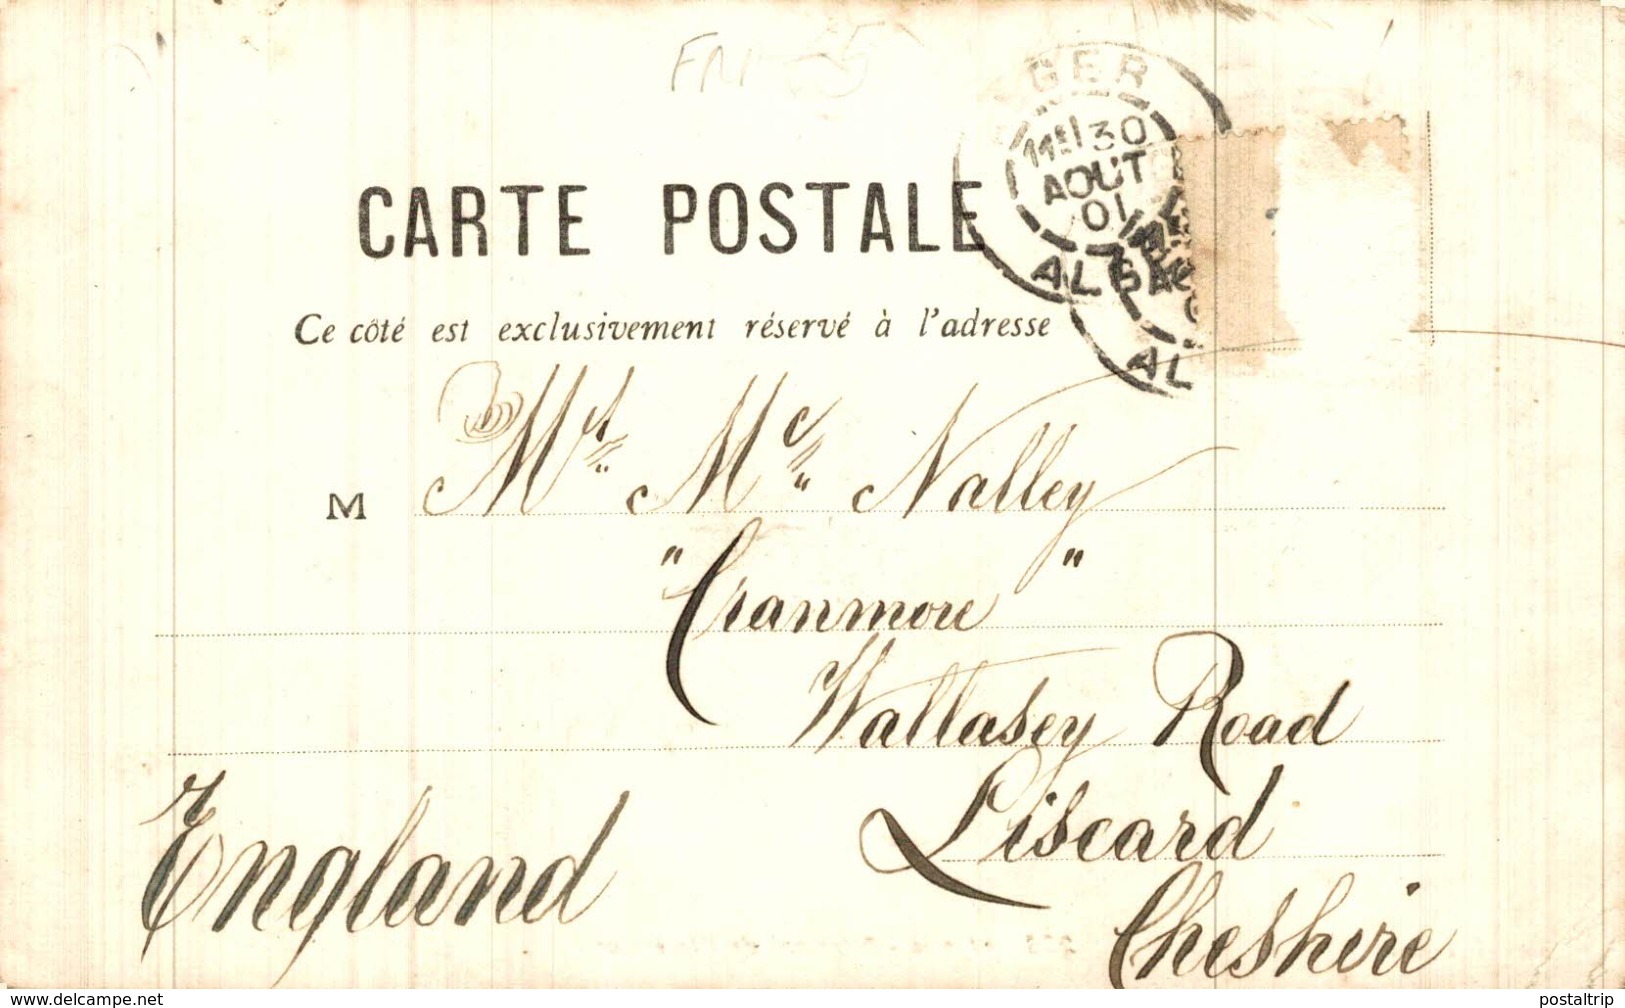 GER
11E 30
AOUT
01
ALG
AL
CARTE POSTALE
Ce côté est exclusivement réservé à l'adresse
M Mrs Mc Nalley
"Cranmore"
Wallasey Road
Liscard
Cheshire
England
www.delcampe.net
postaltrip